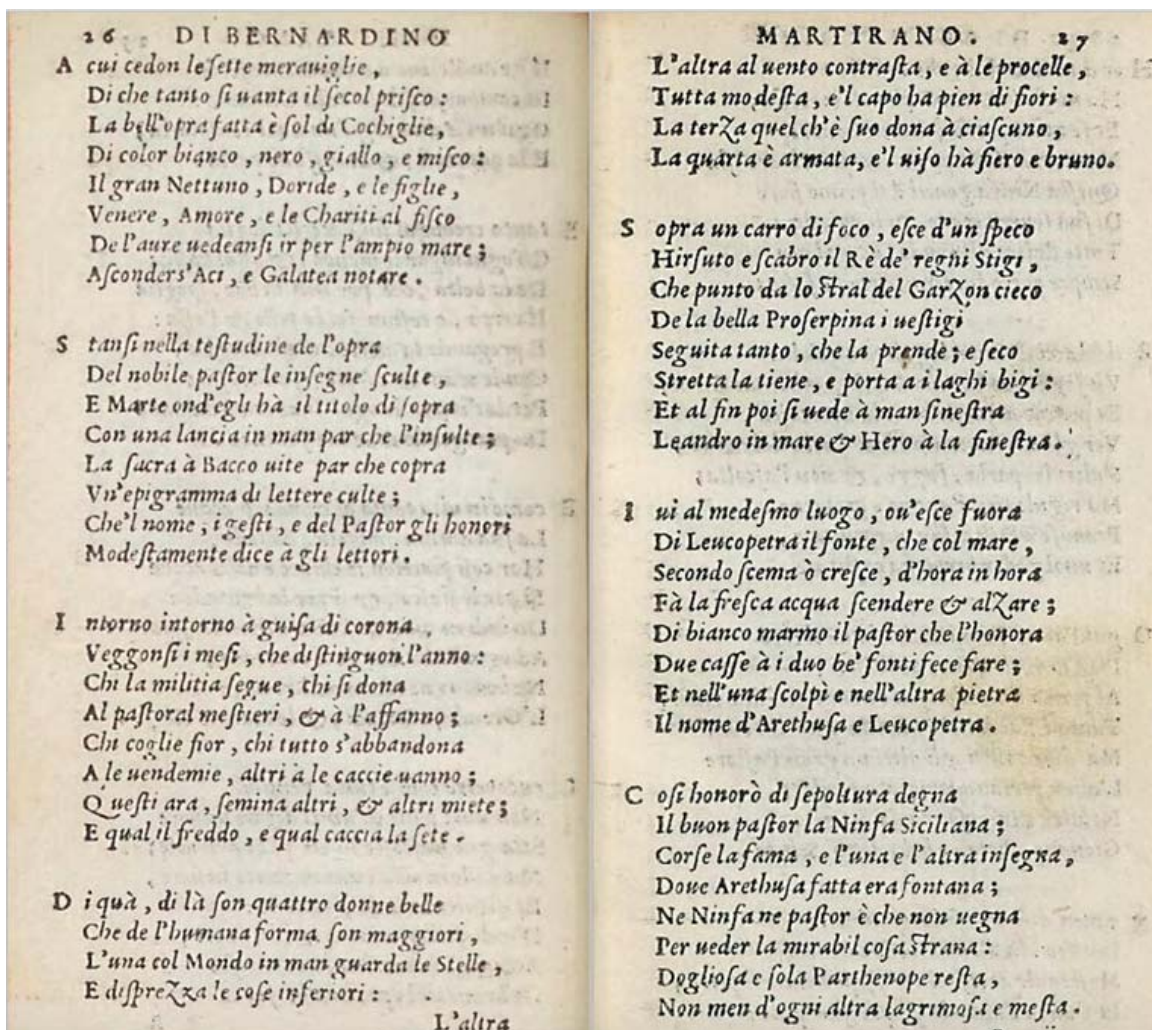 26 DI BERNARDINO
A cui cedon le ſette merauiglie ,
Di che tanto ſi uanta il ſecol priſco :
La bell'opra fatta è ſol di Cochiglie,
Di color bianco , nero , giallo , e miſco :
Il gran Nettuno , Doride , e le figlie ,
Venere , Amore , e le Chariti al fiſco
De l'aure uedeanſi ir per l'ampio mare ;
Aſconders'Aci , e Galatea notare .
S tanſi nella teſtudine de l'opra
Del nobile paſtor le inſegne ſculte ,
E Marte ond'egli hà il titolo di ſopra
Con una lancia in man par che l'inſulte ;
La ſacra à Bacco uite par che copra
Vn'epigramma di lettere culte ;
Che'l nome , i geſti , e del Paſtor gli honori
Modeſtamente dice à gli lettori .
I ntorno intorno à guiſa di corona
Veggonſi i meſi , che diſtinguon l'anno :
Chi la militia ſegue , chi ſi dona
Al paſtoral meſtieri , & à l'affanno ;
Chi coglie fior , chi tutto s'abbandona
A le uendemie , altri à le caccie uanno ;
Queſti ara , ſemina altri , & altri miete ;
E qual il freddo , e qual caccia la ſete .
D i quà , di là ſon quattro donne belle
Che de l'humana forma ſon maggiori ,
L'una col Mondo in man guarda le Stelle ,
E diſprezza le coſe inferiori :
L'altra
MARTIRANO. 27
L'altra al uento contraſta , e à le procelle ,
Tutta modeſta , e'l capo ha pien di fiori :
La terza quel ch'è ſuo dona à ciaſcuno ,
La quarta è armata, e'l uiſo hà fiero e bruno.
S opra un carro di foco , eſce d'un ſpeco
Hirſuto e ſcabro il Rè de' regni Stigi ,
Che punto da lo ſtral del Garzon cieco
De la bella Proſerpina i ueſtigi
Seguita tanto , che la prende ; e ſeco
Stretta la tiene , e porta a i laghi bigi :
Et al fin poi ſi uede à man ſineſtra
Leandro in mare & Hero à la fineſtra .
I ui al medeſmo luogo , ou'eſce fuora
Di Leucopetra il fonte , che col mare ,
Secondo ſcema ò creſce , d'hora in hora
Fà la freſca acqua ſcendere & alzare ;
Di bianco marmo il paſtor che l'honora
Due caſſe à i duo be' fonti fece fare ;
Et nell'una ſcolpì e nell'altra pietra
Il nome d'Arethuſa e Leucopetra .
C oſi honorò di ſepoltura degna
Il buon paſtor la Ninfa Siciliana ;
Corſe la fama , e l'una e l'altra inſegna ,
Doue Arethuſa fatta era fontana ;
Ne Ninfa ne paſtor è che non uegna
Per ueder la mirabil coſa ſtrana :
Dogliosa e ſola Parthenope reſta ,
Non men d'ogni altra lagrimoſa e meſta .